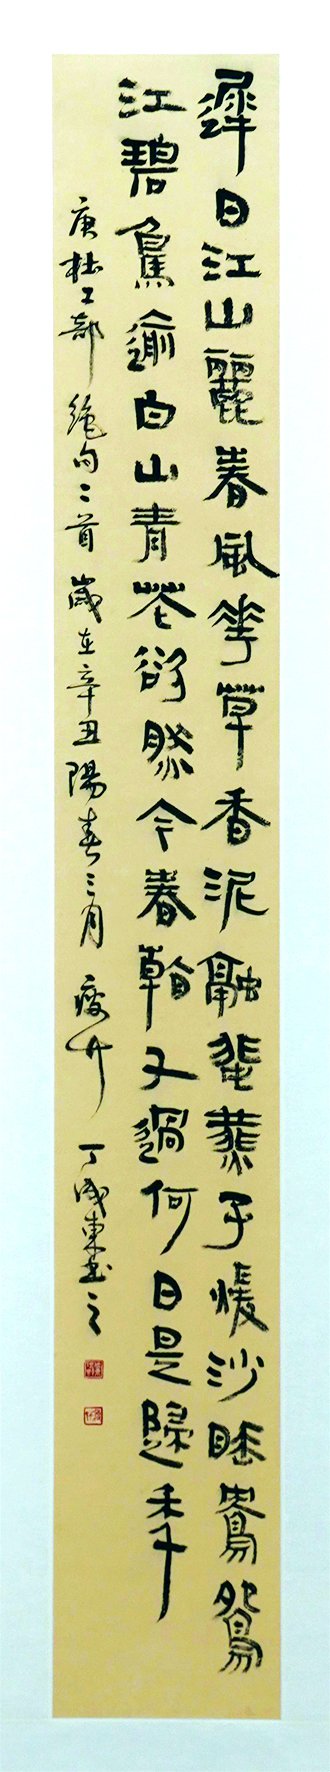 遲日江山麗春風華草香泥融蜚燕子暖沙睡鴦鴛
江碧鳥逾白山青花欲然今春看又過何日是歸年
唐杜工部絕句二首歲在辛丑陽春三月瘦竹丁成東書之